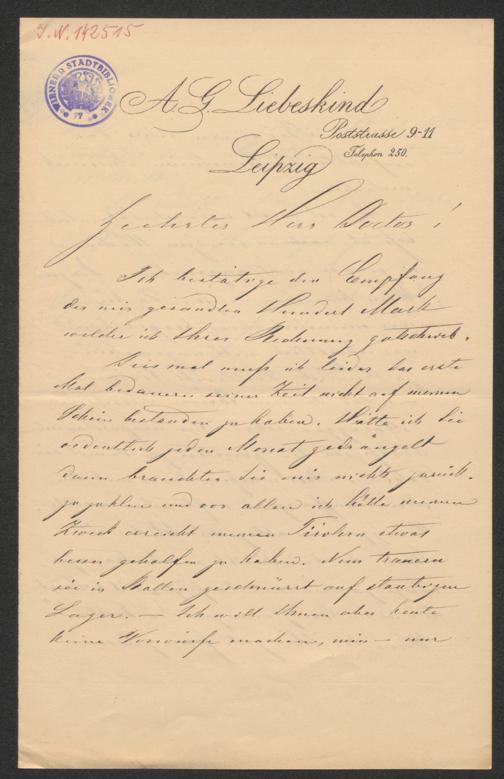 J.N. 142515
WIENER STADTBIBLIOTHEK
A. G. Liebeskind
Poststrasse 9-11
Telephon 250.
Leipzig
Geehrter Herr Doctor!
Ich bestätige den Empfang
der mir gesandten Hundert Mark
welche ich Ihrer Rechnung gutschrieb.
Diesmal muß ich leider das erste
Mal bedauern seiner Zeit nicht auf meinem
Schein bestanden zu haben. Hätte ich Sie
ordentlich jeden Monat gedrängelt
dann brauchten Sie mir nichts zurück-
zuzahlen und vor allem ich hätte meinen
Zweck erreicht meinen Tirolern etwas
besser geholfen zu haben. Nun trauern
sie in Ballen geschnürt auf staubigem
Lager. — Ich will Ihnen aber heute
keine Vorwürfe machen, nein — nur